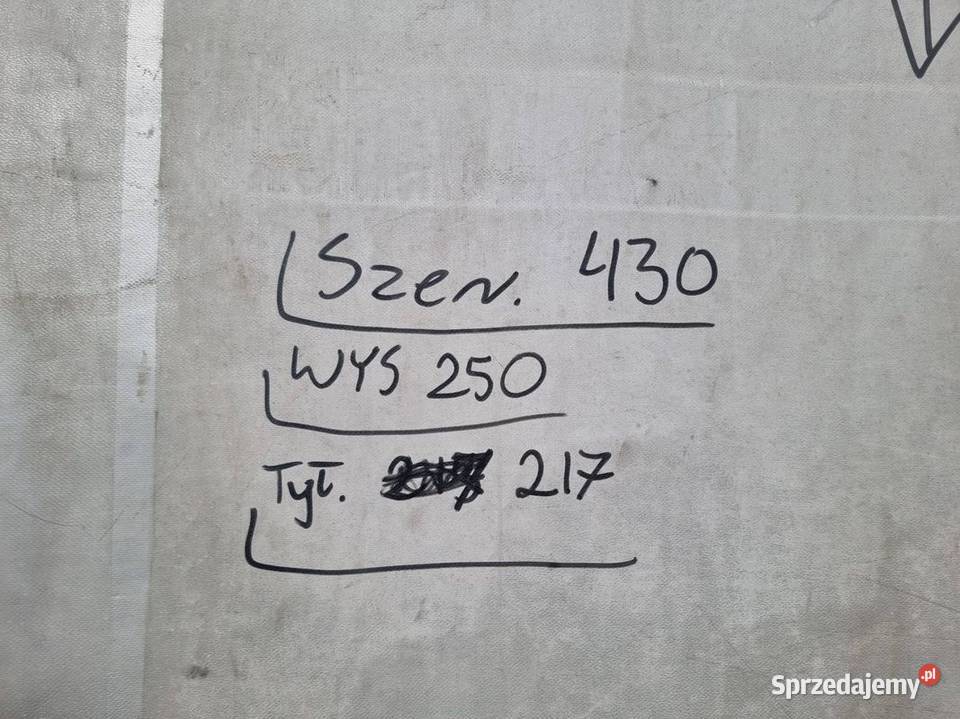 Szer. 430
WYS 250
Tył. 217
Sprzedajemy.pl